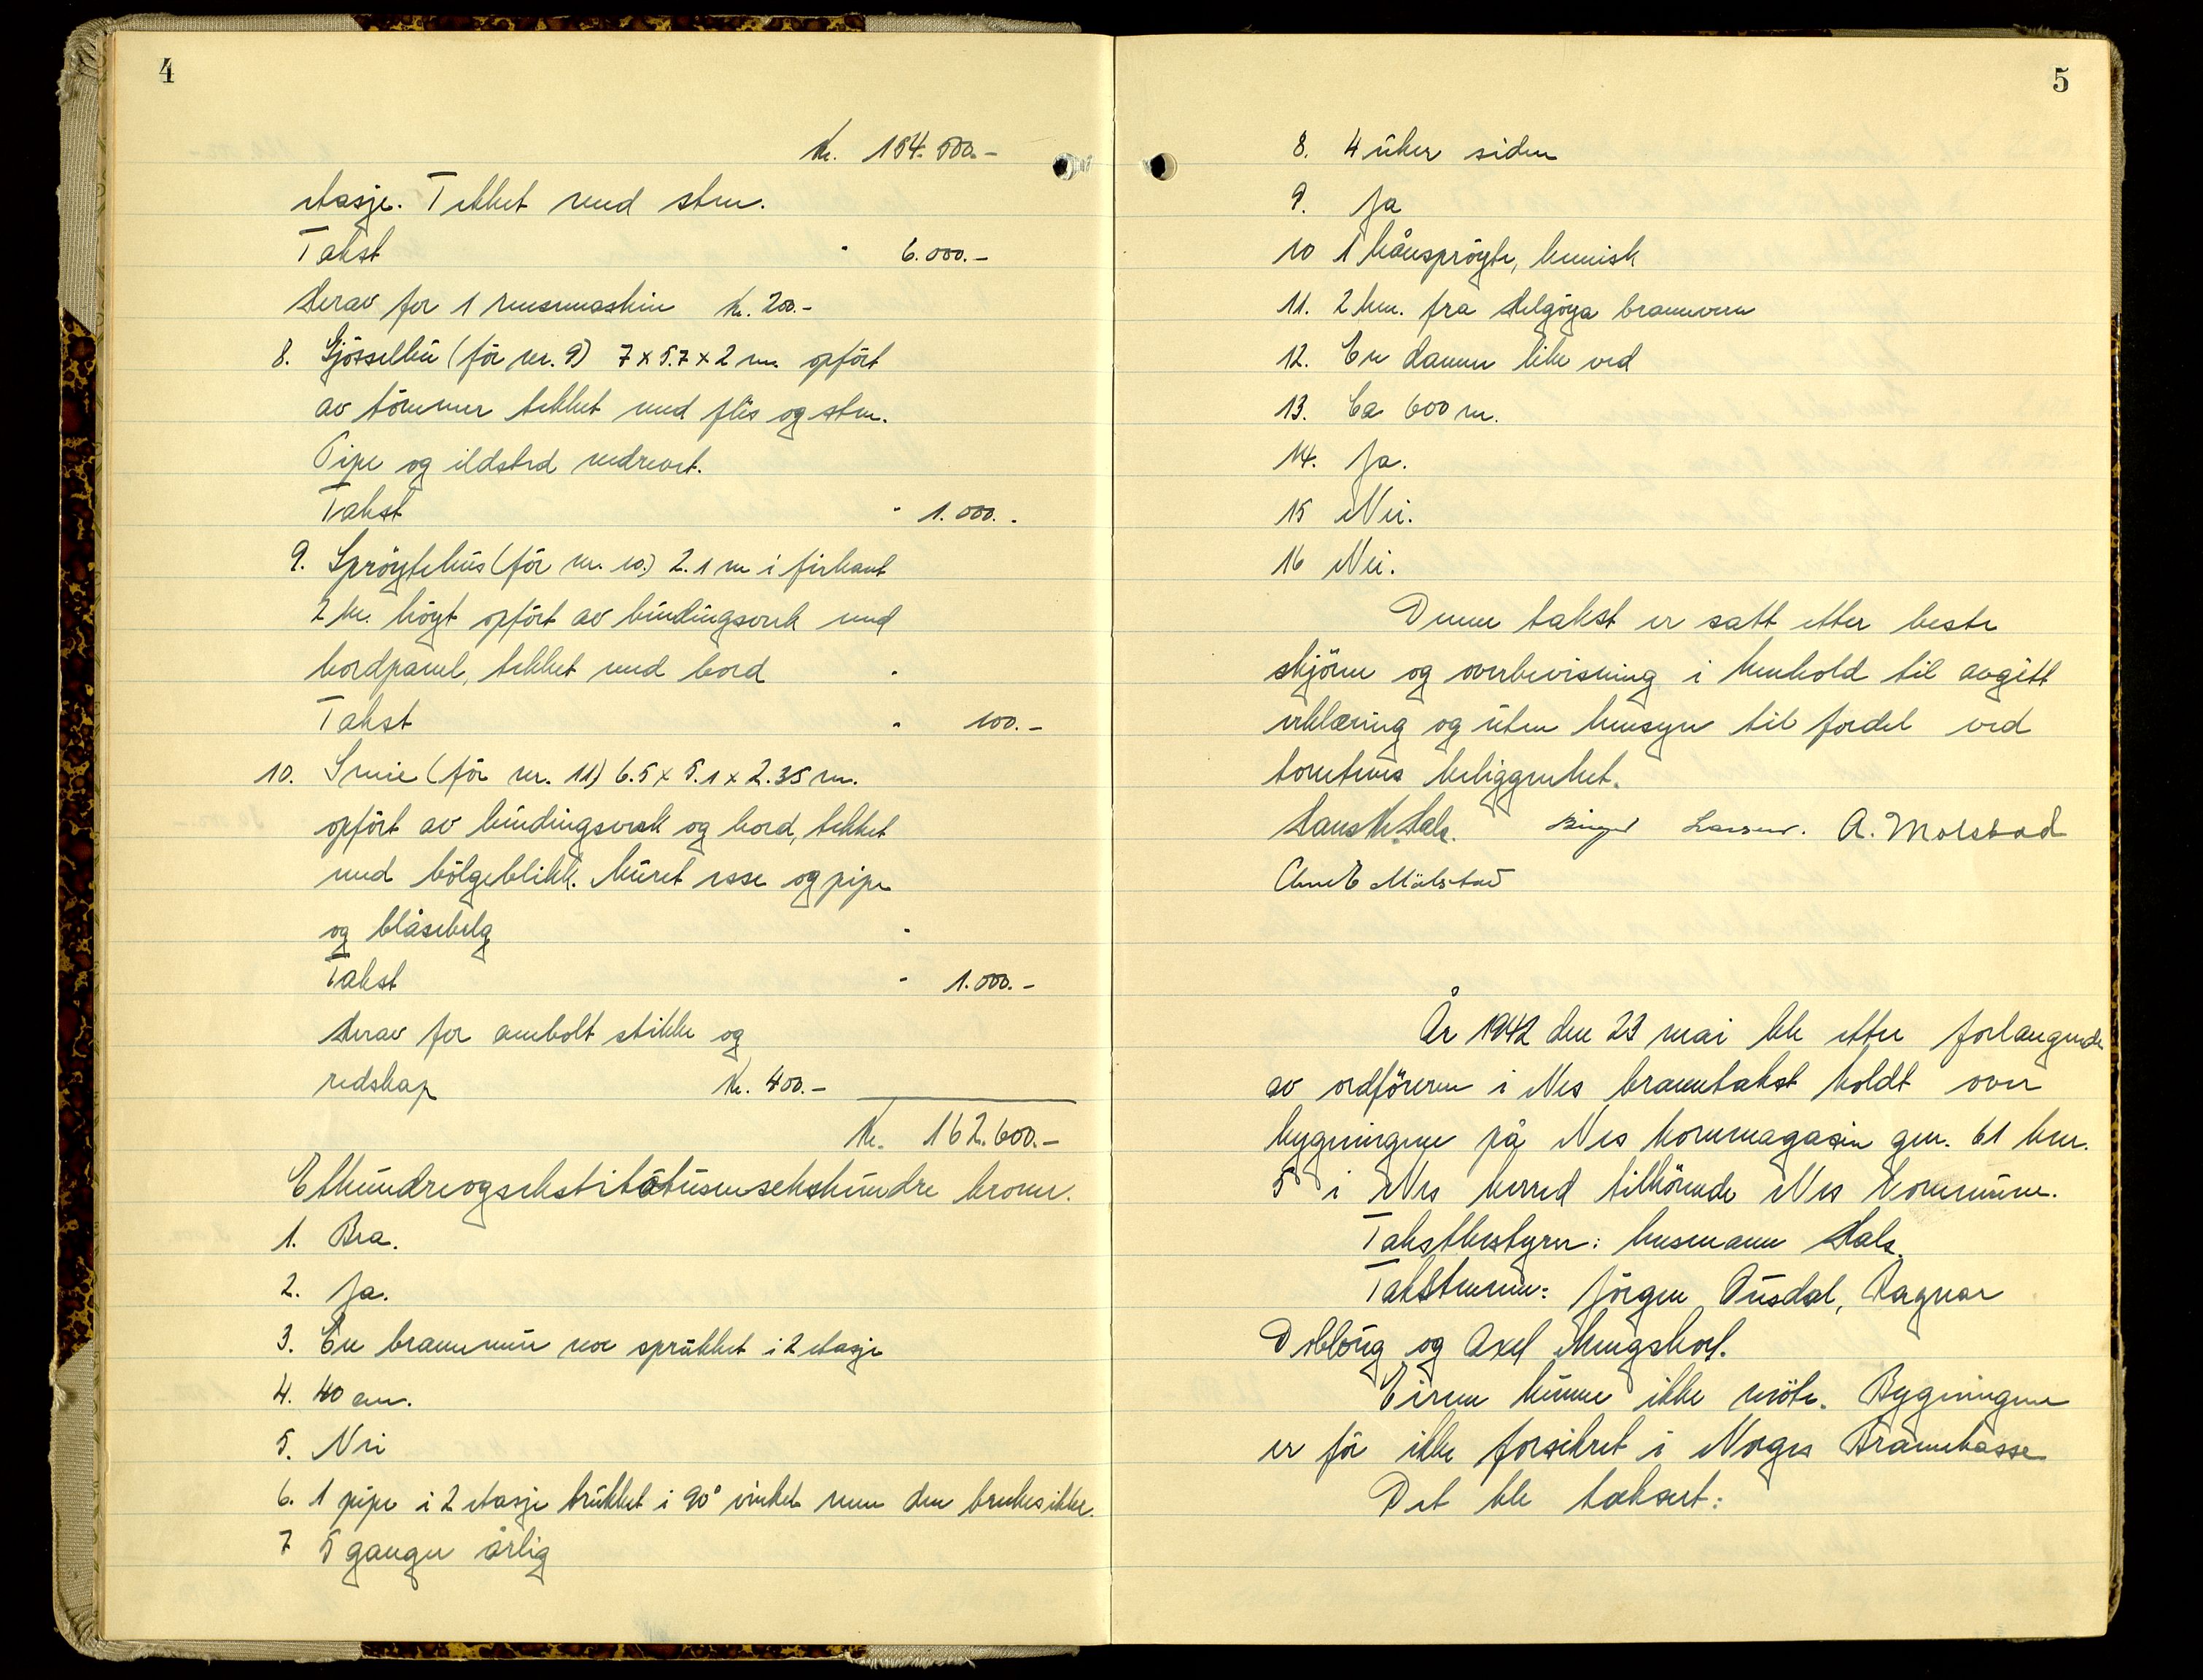 4
Kr. 154.500.-
etasje. Tekket med sten.
Takst " 6.000.-
Herav for 1 rensemaskin Kr. 200.-
8. Gjösselhus (för nr. 9) 7 x 5.7 x 2 m. opfört
av tömmer tekket med flis og sten.
Pipe og ildsted nedrevet.
Takst " 1.000.-
9. Spröytehus (för nr. 10.) 2.1 m i firkant
2 m. höyt opfört av bindingsverk med
bordpanel, tekket med bord "
Takst " 100.-
10. Smie (för nr. 11) 6.5 x 5.1 x 2.35 m.
opfört av bindingsverk og bord, tekket
med bölgeblikk. Muret esse og pipe
og blåsebelg "
Takst " 1.000.-
Herav for ambolt stikke og
redskap Kr. 400.-
Kr. 162.600.-
Etthundreogsekstitotusensekshundre kroner.
1. Bra.
2. Ja.
3. En brannmur noe sprukket i 2 etasje
4. 40 cm.
5. Nei
6. 1 pipe i 2 etasje trukket i 90° vinkel men den brukes ikke.
7 5 ganger årlig
5
8. 4 uker siden
9. Ja
10 1 håndspröyte, kemisk
11. 2 km. fra Helgöya brannvern
12. En damm like ved
13. Ca 600 m.
14. Ja.
15 Nei.
16 Nei.
Denne takst er satt etter beste
skjönn og overbevisning i henhold til avgitt
erklæring og uten hensyn til fordel ved
tomtens beliggenhet.
Hans H. Hals. Larsen. A. Molstad
Arne E Mölstad
År 1942 den 23 mai ble etter forlangende
av ordföreren i Nes branntakst holdt over
bygningene på Nes kornmagasin gnr. 61 bnr.
5 i Nes herred tilhörende Nes kommune.
Takstbestyrer: lensmann Hals.
Takstmenn: Jörgen Ousdal, Ragnar
Deblöug og Axel Mengshoel.
Eieren kunne ikke möte. Bygningene
er för ikke forsikret i Norges Brannkasse
Det ble taksert: